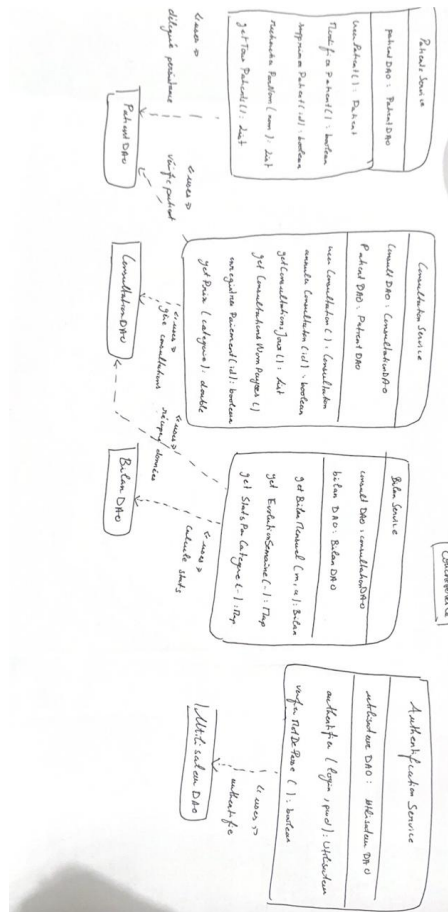 Patients Service
patientDAO : PatientDAO
creerPatient() : Patient
Modifier Patient() : boolean
supprimer Patient(id) : boolean
rechercher ParNom (nom) : List
get Tous Patients() : List
<<uses>>
délègue persistance
Patient DAO
<<uses>>
vérifie patient
Consultation Service
Consult DAO : ConsultationDAO
Patient DAO : Patient DAO
creer Consultation() : Consultation
annuler Consultation (id) : boolean
getConsultationsJour() : List
get Consultations NonPayees()
enregistrer Paiement(id) : boolean
get Prix (categorie) : double
<<uses>>
gère consultations
Consultation DAO
<<uses>>
récupère données
Bilan Service
consult DAO : consultationDAO
bilan DAO : Bilan DAO
get Bilan Mensuel (m, a) : Bilan
get EvolutionSemaine(-) : Map
get Stats Par Categorie(-) : Map
<<uses>>
calcule stats
Bilan DAO
Authentification Service
utilisateur DAO : Utilisateur DAO
authentifier (login, pwd) : Utilisateur
verifier MotDePasse () : boolean
<<uses>>
authentifie
Utilisateur DAO